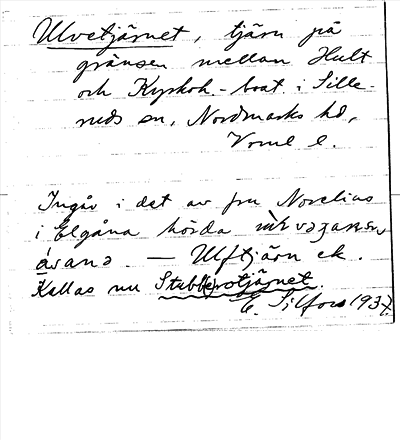 Ulvetjärnet, tjärn på
gränsen mellan Hult
och Kyrkoh.-bost. i Sille-
ruds sn, Nordmarks hd,
Vrml l.
Ingår i det av fru Norelius
i Elgåna hörda
— Ulftjärn ek.
Kallas nu Stubb(e)rotjärnet.
E. 1937.